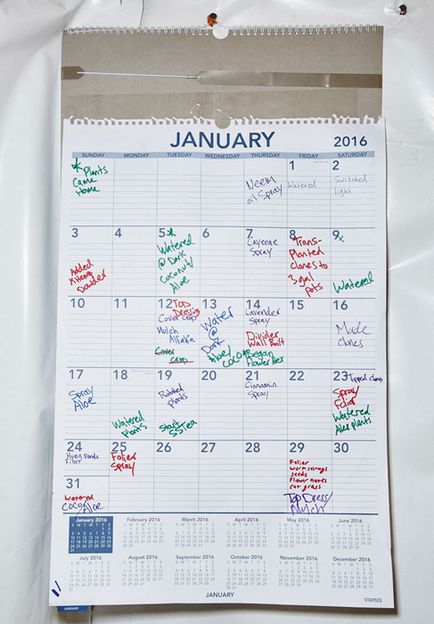 JANUARY 2016
SUNDAY MONDAY TUESDAY WEDNESDAY THURSDAY FRIDAY SATURDAY
Plants
Came
Home
Neem
oil Spray
1
Watered
2
Switched
light
3
Added
Powder
4
5
Watered
@ Dark
Coconut/
Aloe
6
7
Cayenne
Spray
8
Trans-
Planted
clones to
3 gal
pots
9
Watered
10
11
12
Top
Dressing
Cover Crop
Mulch
Alfalfa
Cover
crop
13
Water
@
Dark
Aloe/
COCO
14
Lavender
Spray
Divider
Wall Built
Began
Flowering
15
16
Made
clones
17
Spray
Aloe
18
Watered
Plants
19
Rotated
Plants
Start
SSTea
20
21
Cinnamon
Spray
22
23
Topped clones
Spray
Folier
Watered
Aloe plants
24
25
Folied
Spray
26
27
28
29
Folier
worm
seeds
Flower
grass
Top Dress/
Mulch
30
31
Watered
COCO/Aloe
January 2016 February 2016 March 2016 April 2016 May 2016 June 2016
July 2016 August 2016 September 2016 October 2016 November 2016 December 2016
JANUARY
STAPLES
JANUARY